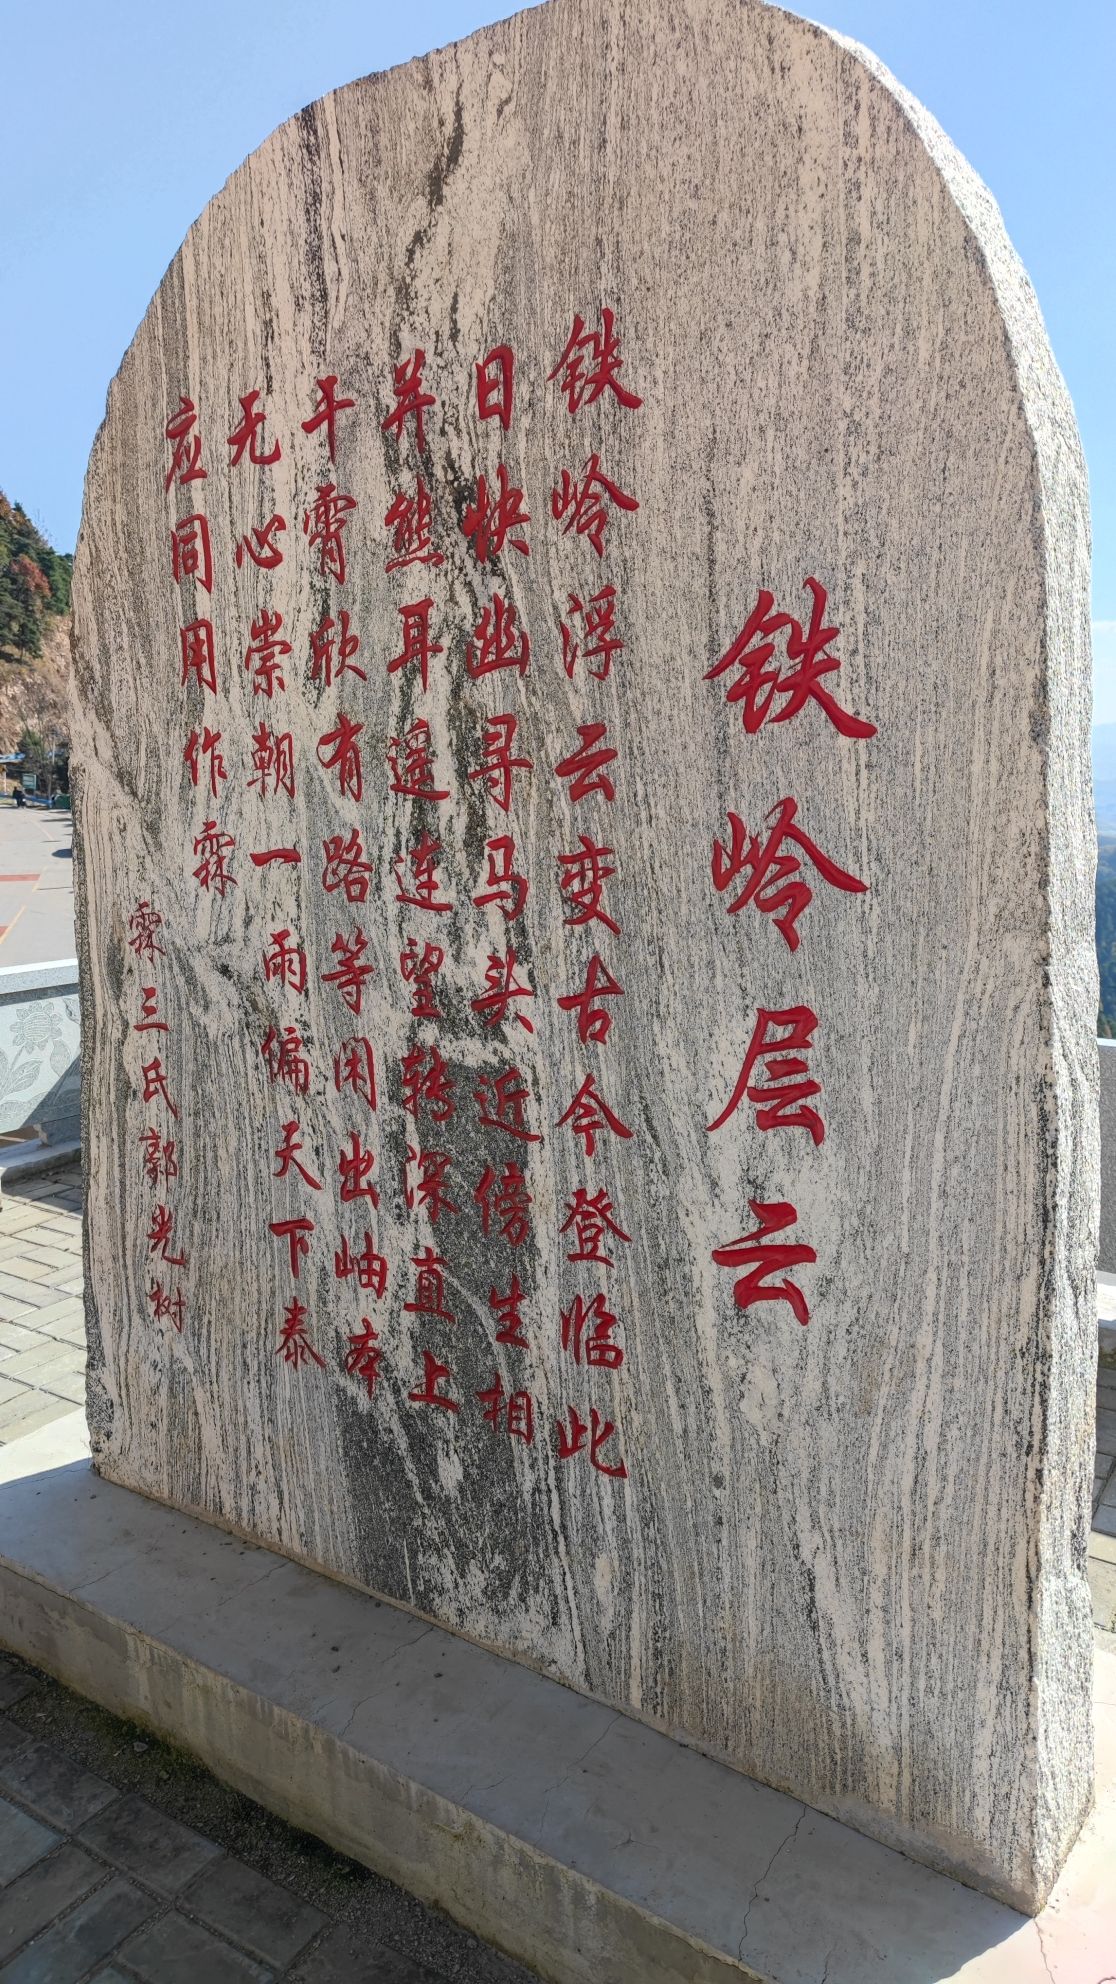 铁岭层云
铁岭浮云变古今登临此
日快幽寻马头近傍生相
并熊耳遥连望转深直上
干霄欣有路等闲出岫本
无心崇朝一雨偏天下泰
应同用作霖
霖三氏郭光树